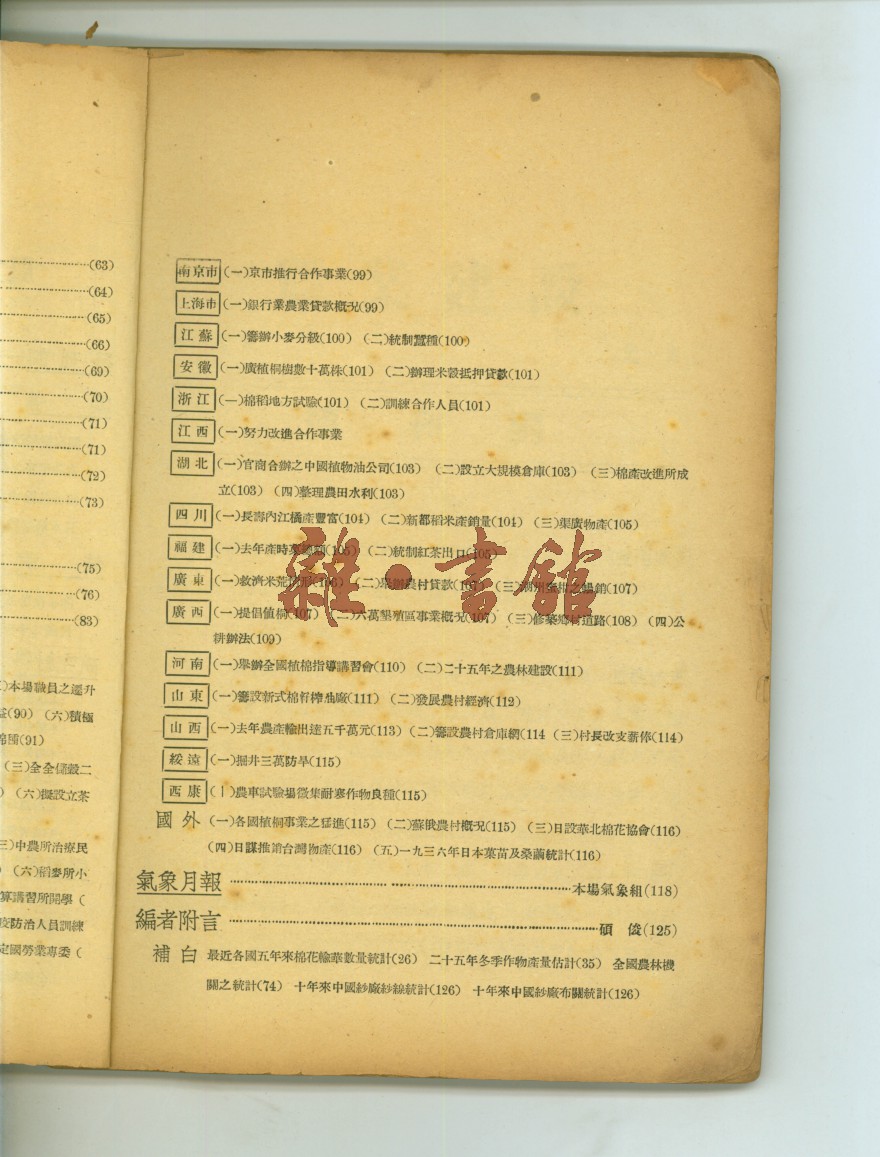 (63)
(64)
(65)
(66)
(69)
(70)
(71)
(71)
(72)
(73)
(75)
(76)
(83)
)本場職員之遷升
(90) (六)積極
棉種(91)
(三)全全儲穀二
) (六)擬設立茶
三)中農所治療民
) (六)稻麥所小
算講習所開學 (
疫防治人員訓練
定國勞業專委 (
南京市 (一)京市推行合作事業(99)
上海市 (一)銀行業農業貸款概況(99)
江蘇 (一)籌辦小麥分級(100) (二)統制蠶種(100)
安徽 (一)廣植桐樹數十萬株(101) (二)辦理米穀抵押貸款(101)
浙江 (一)棉稻地方試驗(101) (二)訓練合作人員(101)
江西 (一)努力改進合作事業
湖北 (一)官商合辦之中國植物油公司(103) (二)設立大規模倉庫(103) (三)棉產改進所成
立(103) (四)整理農田水利(103)
四川 (一)長壽內江橘產豐富(104) (二)新都稻米產銷量(104) (三)渠廣物產(105)
福建 (一)去年產時 (105) (二)統制紅茶出口(105)
廣東 (一)救濟米荒 (106) (二)舉辦農村貸款(107) (三)潮州 柑之暢銷(107)
廣西 (一)提倡值桐(107) (二)六萬墾殖區事業概況(107) (三)修築鄉村道路(108) (四)公
耕辦法(109)
河南 (一)舉辦全國植棉指導講習會(110) (二)二十五年之農林建設(111)
山東 (一)籌設新式棉籽榨油廠(111) (二)發民農村經濟(112)
山西 (一)去年農產輸出達五千萬元(113) (二)籌設農村倉庫網(114 (三)村長改支薪俸(114)
綏遠 (一)掘井三萬防旱(115)
西康 (一)農事試驗場徵集耐寒作物良種(115)
國外 (一)各國植桐事業之猛進(115) (二)蘇俄農村概況(115) (三)日設華北棉花協會(116)
(四)日謀推銷台灣物產(116) (五)一九三六年日本菓苗及桑繭統計(116)
氣象月報 本場氣象組(118)
編者附言 碩俊(125)
補白 最近各國五年來棉花輸華數量統計(26) 二十五年冬季作物產量估計(35) 全國農林機
關之統計(74) 十年來中國紗廠紗線統計(126) 十年來中國紗廠布關統計(126)
雜·書館